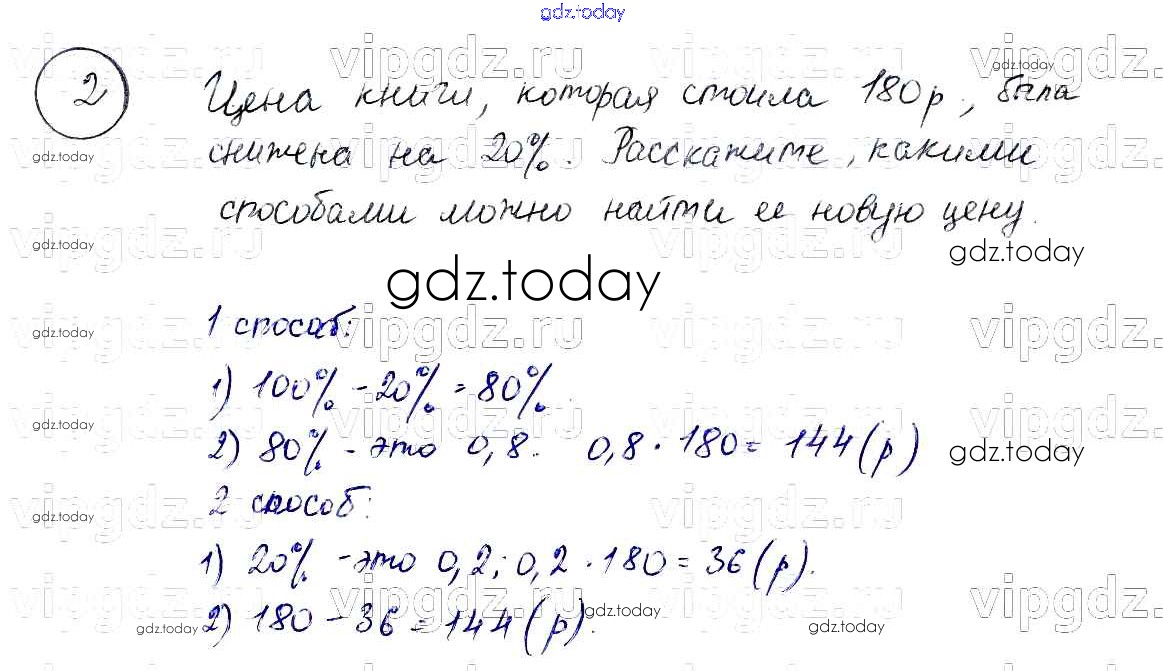 gdz.today
2
Цена книги, которая стоила 180 р., была
снижена на 20%. Расскажите, какими
способами можно найти ее новую цену.
gdz.today
1 способ:
1) 100% - 20% = 80%.
2) 80% - это 0,8. 0,8 · 180 = 144 (р)
2 способ:
1) 20% - это 0,2; 0,2 · 180 = 36 (р).
2) 180 - 36 = 144 (р).
vipgdz.ru